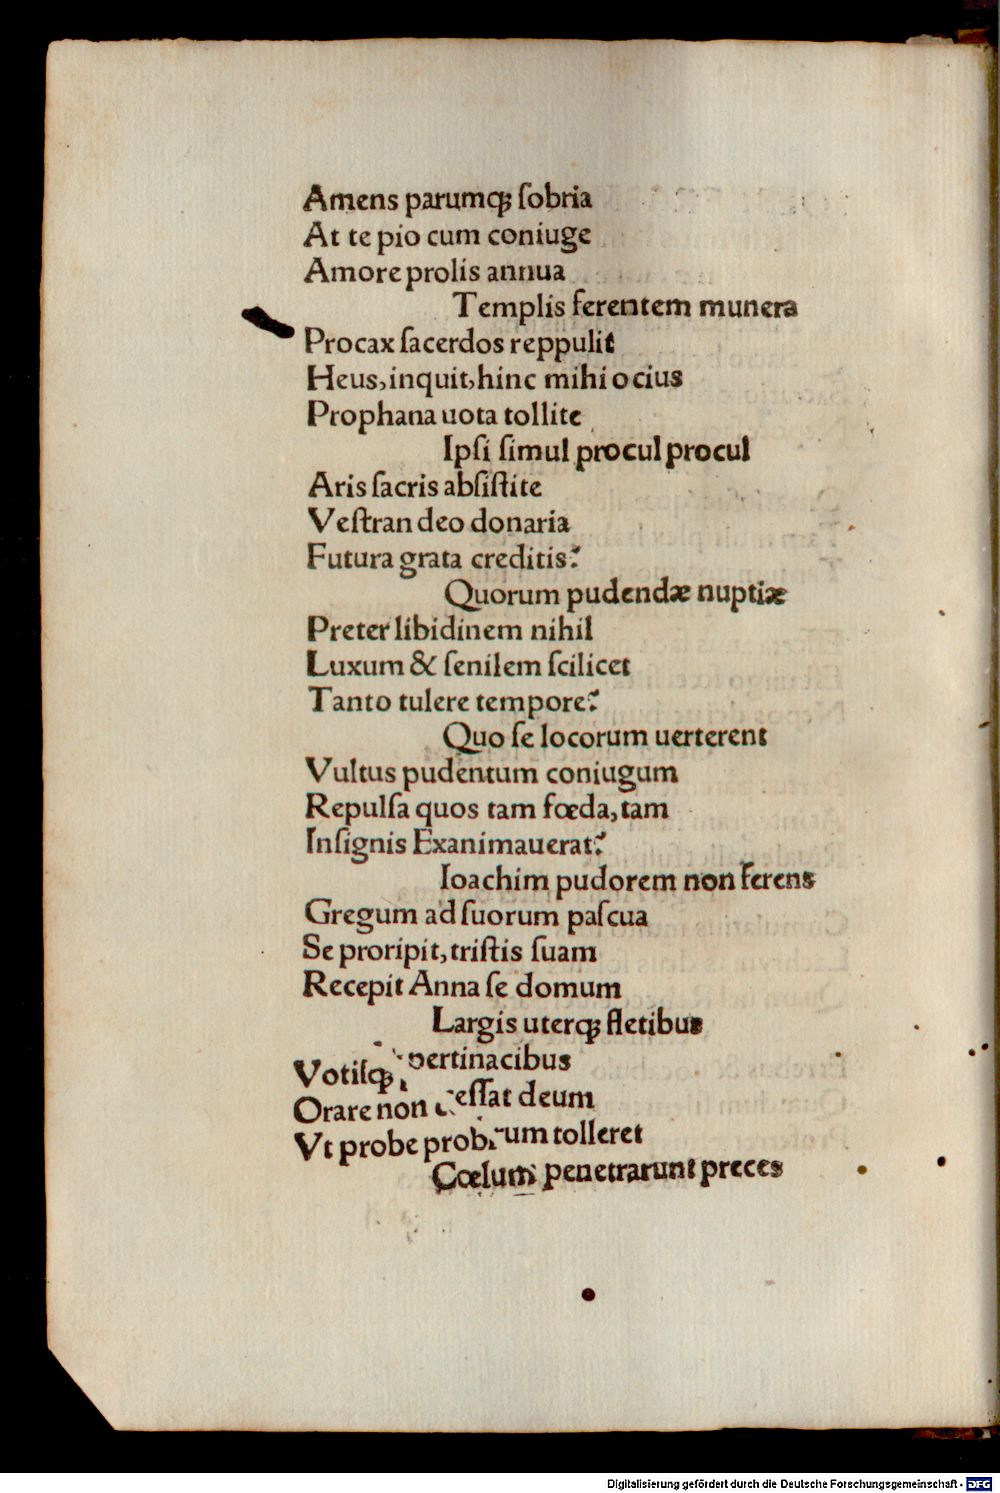 Amens parumqꝫ ſobria
At te pio cum coniuge
Amore prolis annua
Templis ferentem munera
Procax ſacerdos reppulit
Heus, inquit, hinc mihi ocius
Prophana uota tollite
Ipſi ſimul procul procul
Aris ſacris abſiſtite
Veſtran deo donaria
Futura grata creditis?
Quorum pudendæ nuptiæ
Preter libidinem nihil
Luxum & ſenilem ſcilicet
Tanto tulere tempore?
Quo ſe locorum uerterent
Vultus pudentum coniugum
Repulſa quos tam fœda, tam
Inſignis Exanimauerat?
Ioachim pudorem non ferens
Gregum ad ſuorum paſcua
Se proripit, triſtis ſuam
Recepit Anna ſe domum
Largis uterqꝫ fletibus
Votiſqꝫ pertinacibus
Orare non ceſſat deum
Vt probe probrum tolleret
Cœlum penetrarunt preces
Digitalisierung gefördert durch die Deutsche Forschungsgemeinschaft - DFG